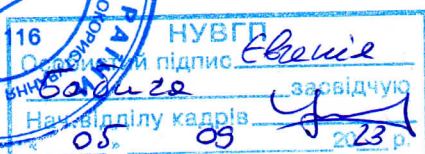 116 НУВГП
Особистий підпис Євгенія
засвідчую
Нач. відділу кадрів
"05" 09 2023 р.